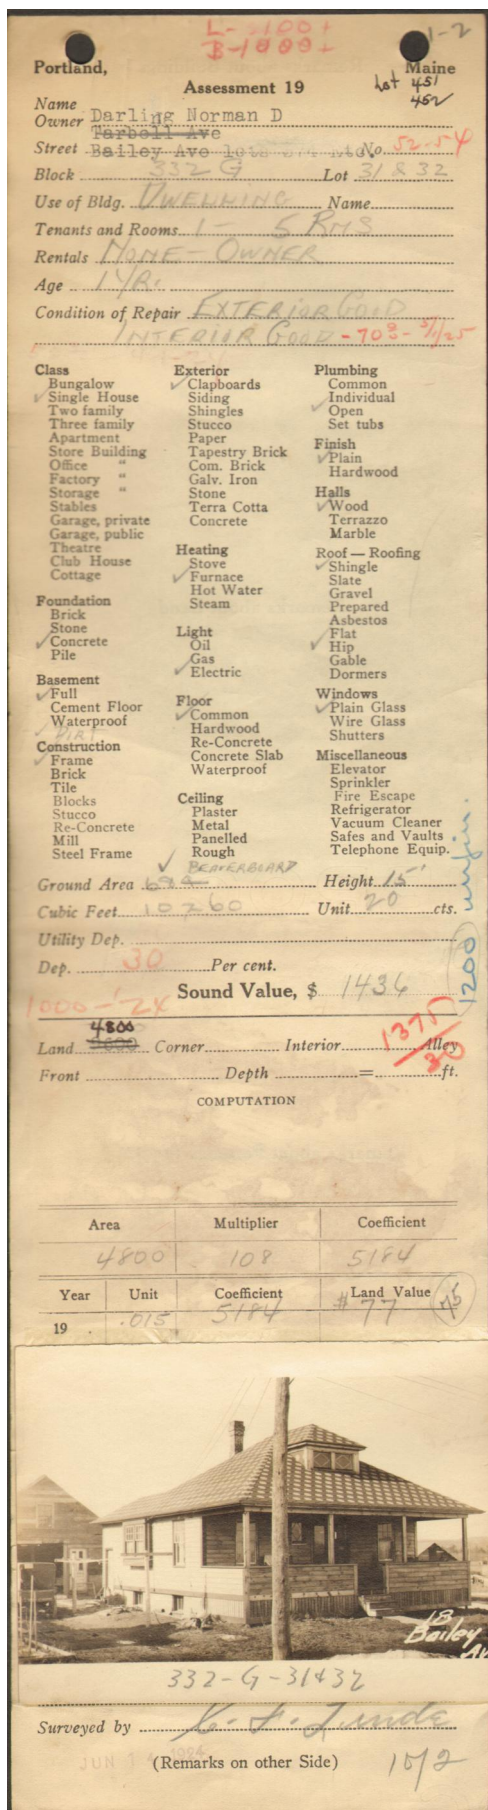 L-2100+
B-1000+
1-2
Portland, Maine
Assessment 19
Lot 451
452
Name
Owner Darling Norman D
Tarbell Ave
Street Bailey Ave No. 52-54
Block 332 G Lot 31 & 32
Use of Bldg. DWELLING Name
Tenants and Rooms 1 - 5 RMS
Rentals NONE - OWNER
Age 1 YR.
Condition of Repair EXTERIOR GOOD
INTERIOR GOOD
Class
Bungalow
Single House
Two family
Three family
Apartment
Store Building
Office "
Factory "
Storage "
Stables
Garage, private
Garage, public
Theatre
Club House
Cottage
Foundation
Brick
Stone
Concrete
Pile
Basement
Full
Cement Floor
Waterproof
DIRT
Construction
Frame
Brick
Tile
Blocks
Stucco
Re-Concrete
Mill
Steel Frame
Exterior
Clapboards
Siding
Shingles
Stucco
Paper
Tapestry Brick
Com. Brick
Galv. Iron
Stone
Terra Cotta
Concrete
Heating
Stove
Furnace
Hot Water
Steam
Light
Oil
Gas
Electric
Floor
Common
Hardwood
Re-Concrete
Concrete Slab
Waterproof
Ceiling
Plaster
Metal
Panelled
Rough
BEAVERBOARD
Plumbing
Common
Individual
Open
Set tubs
Finish
Plain
Hardwood
Halls
Wood
Terrazzo
Marble
Roof — Roofing
Shingle
Slate
Gravel
Prepared
Asbestos
Flat
Hip
Gable
Dormers
Windows
Plain Glass
Wire Glass
Shutters
Miscellaneous
Elevator
Sprinkler
Fire Escape
Refrigerator
Vacuum Cleaner
Safes and Vaults
Telephone Equip.
1200 unfin.
Ground Area Height 15'
Cubic Feet 10260 Unit 20 cts.
Utility Dep.
Dep. 30 Per cent.
Sound Value, $ 1436
1000 - '24
1375
4800
Land 9600 Corner Interior Alley
Front Depth = ft.
COMPUTATION
Area Multiplier Coefficient
4800 108 5184
Year Unit Coefficient Land Value
19 .015 5184 $ 77 75
18
Bailey
Av
332-G-31&32
Surveyed by
JUN 1924
(Remarks on other Side)